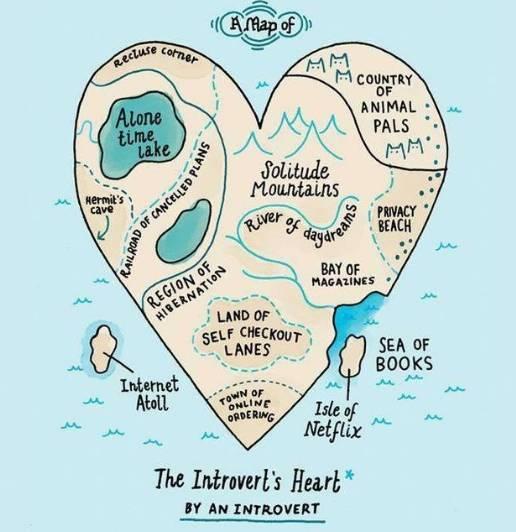 A Map of
Recluse corner
COUNTRY
OF
ANIMAL
PALS
Alone
time
Lake
RAILROAD OF CANCELLED PLANS
Solitude
Mountains
Hermit's
cave
River of daydreams
PRIVACY
BEACH
REGION OF
HIBERNATION
BAY OF
MAGAZINES
LAND OF
SELF CHECKOUT
LANES
SEA OF
BOOKS
Internet
Atoll
TOWN OF
ONLINE
ORDERING
Isle of
Netflix
The Introvert's Heart*
BY AN INTROVERT